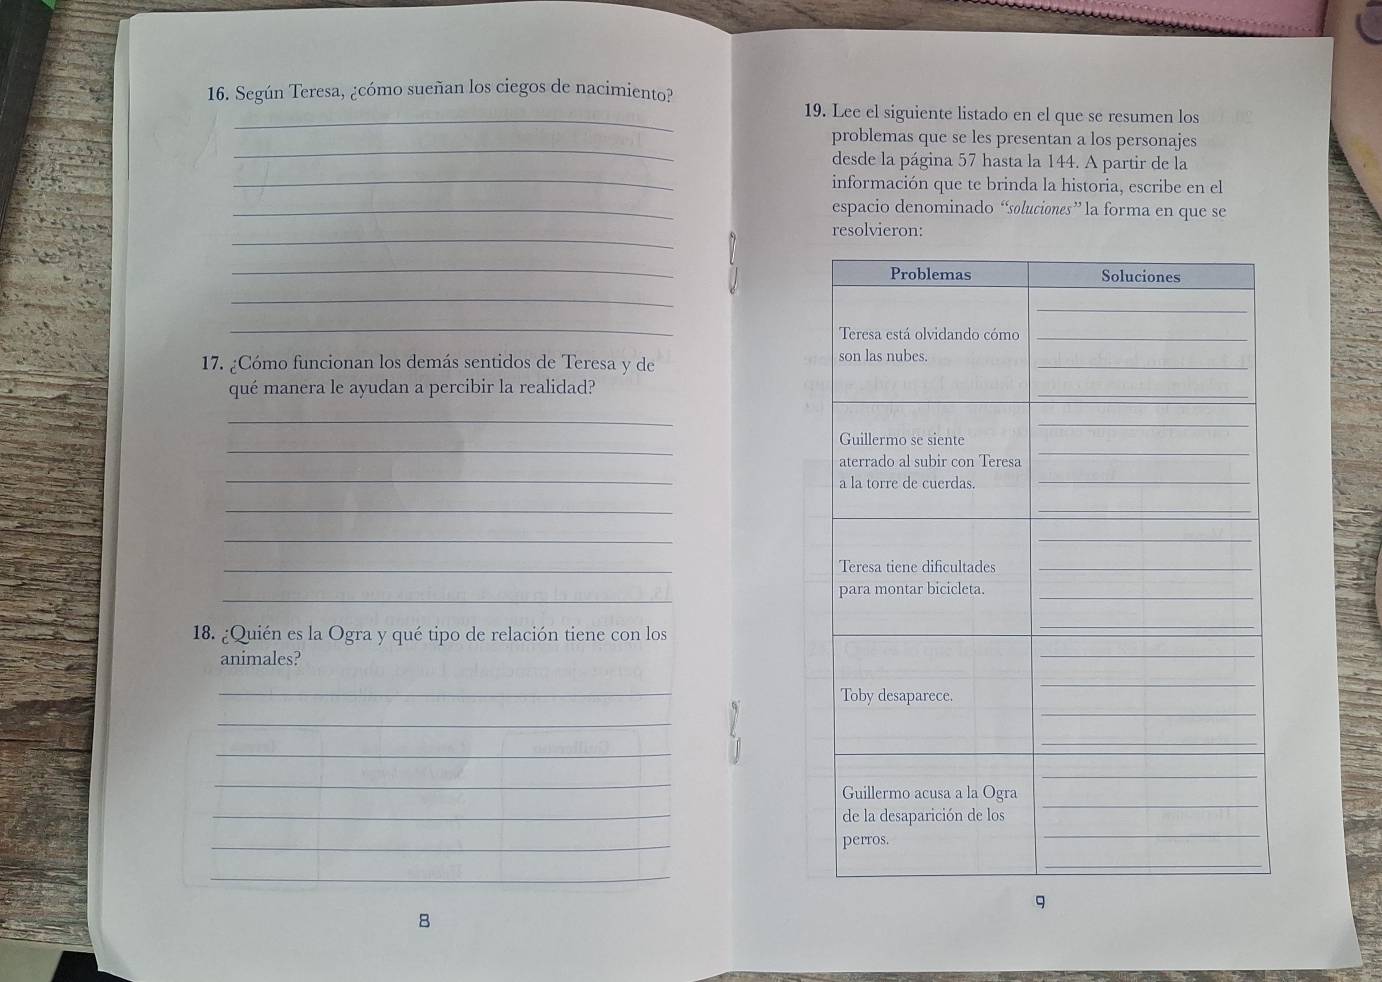 16. Según Teresa, ¿cómo sueñan los ciegos de nacimiento?
17. ¿Cómo funcionan los demás sentidos de Teresa y de
qué manera le ayudan a percibir la realidad?
18. ¿Quién es la Ogra y qué tipo de relación tiene con los
animales?
8
19. Lee el siguiente listado en el que se resumen los
problemas que se les presentan a los personajes
desde la página 57 hasta la 144. A partir de la
información que te brinda la historia, escribe en el
espacio denominado “soluciones” la forma en que se
resolvieron:
Problemas
Soluciones
Teresa está olvidando cómo
son las nubes.
Guillermo se siente
aterrado al subir con Teresa
a la torre de cuerdas.
Teresa tiene dificultades
para montar bicicleta.
Toby desaparece.
Guillermo acusa a la Ogra
de la desaparición de los
perros.
9